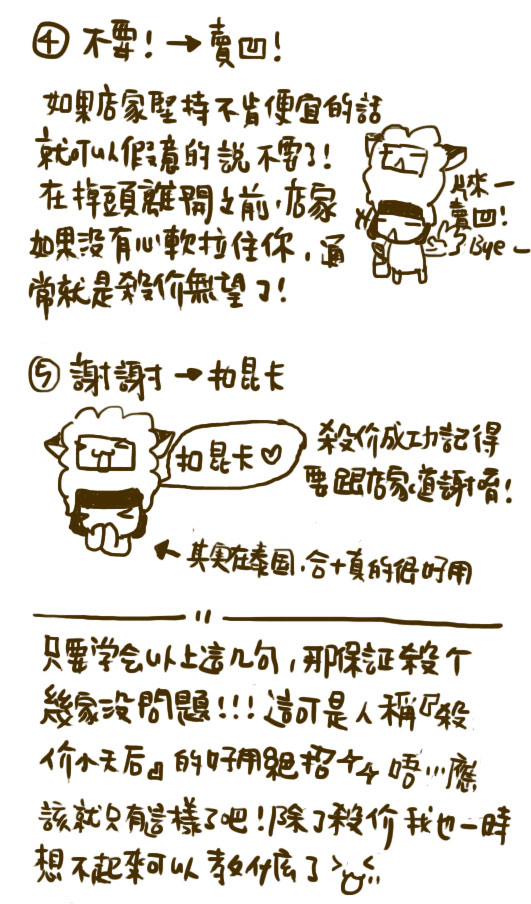 ④ 不要！→賣凹！
如果店家堅持不肯便宜的話
就可以假意的說不要了！
在掉頭離開之前，店家
如果没有心軟拉住你，通
常就是殺价無望了！
來一
賣凹！
Bye
⑤ 謝謝→扣昆卡
扣昆卡♡
殺价成功記得
要跟店家道謝唷！
←其实在泰国，合十真的很好用
只要学会以上這几句，那保証殺个
幾家没問題！！！這可是人稱『殺
价小天后』的好用絕招 唔…應
該就只有這樣了吧！除了殺价我也一時
想不起來可以教什麼了